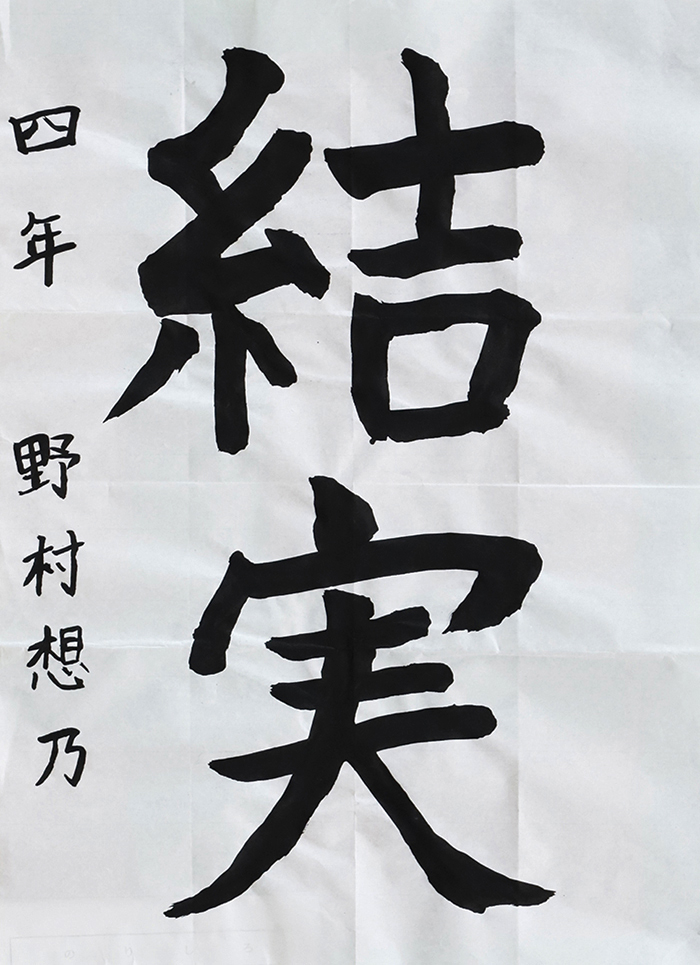 結実
四年 野村想乃